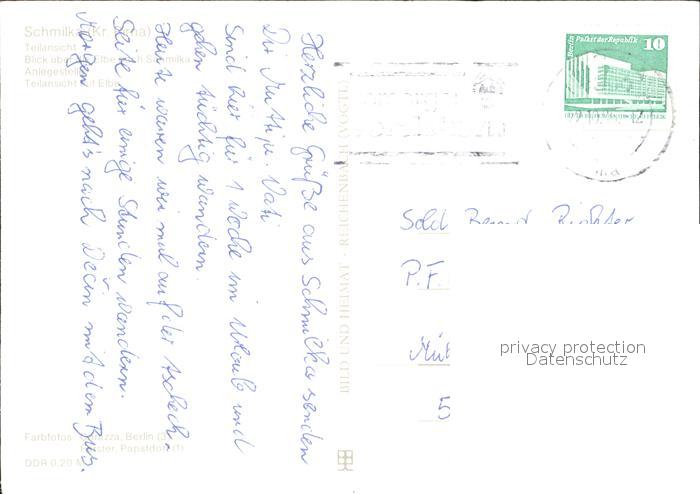 Schmilka (Kr. Pirna)
Teilansicht
Blick über die Elbe nach Schmilka
Anlegestelle
Teilansicht mit Elbe
Herzliche Grüße aus Schmilka senden
Dir Mutti u. Vati
Sind hier für 1 Woche im Urlaub und
gehen tüchtig wandern.
Heute waren wir mal auf der tschech.
Seite für einige Stunden wandern.
Morgen geht's nach Děčín mit dem Bus.
BILD UND HEIMAT · REICHENBACH (VOGTL)
Berlin Palast der Republik 10
DEUTSCHE DEMOKRATISCHE REPUBLIK
Sold. Bernd Richter
P.F.
5
privacy protection
Datenschutz
Farbfotos: Darazza, Berlin (3),
Förster, Papstdorf (1)
DDR 0,20 M